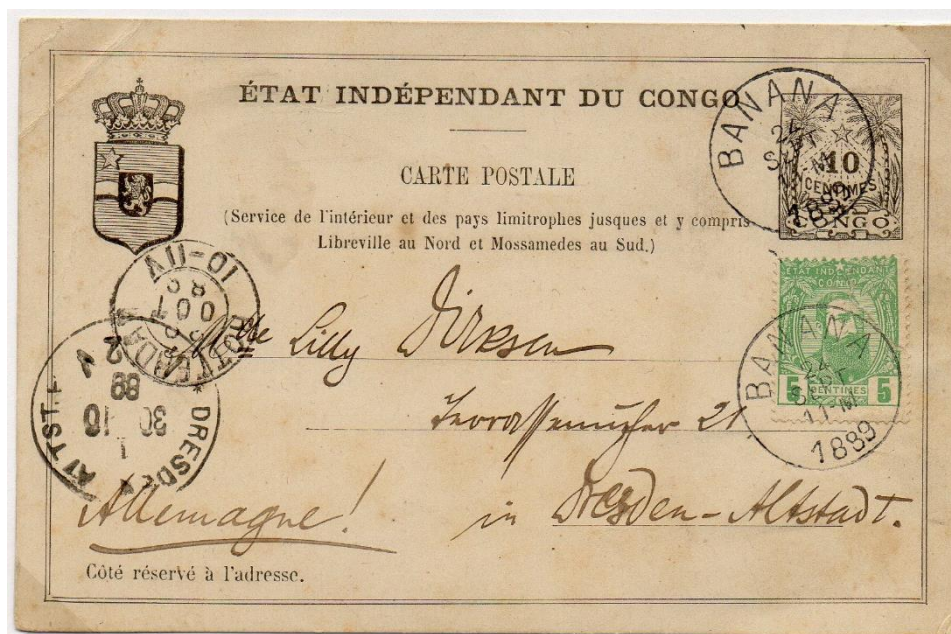 ÉTAT INDÉPENDANT DU CONGO
CARTE POSTALE
(Service de l'intérieur et des pays limitrophes jusques et y compris
Libreville au Nord et Mossamedes au Sud.)
BANANA
24
SEPT
11-M
1889
10
CENTIMES
CONGO
ETAT INDEPENDANT
CONGO
5 CENTIMES 5
BANANA
24
SEPT
11-M
1889
ROTTERDAM
OCT
89
DRESDEN
ALTST.
30 10
89
Mlle Lilly Dirksen
Terrassenufer 21
in Dresden-Altstadt.
Allemagne!
Côté réservé à l'adresse.